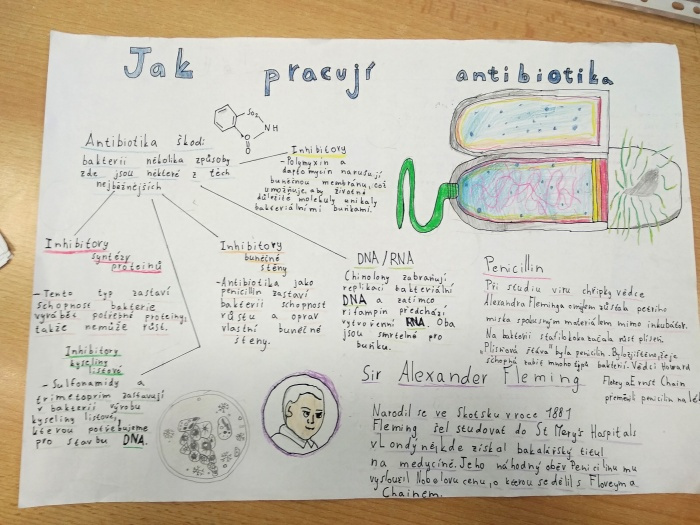 Jak pracují antibiotika
Antibiotika škodí
bakterii několika způsoby
zde jsou některé z těch
nejběžnějších
SO₂
NH
O
Inhibitory
- Polymyxin a
daptomysin narusují
buněčnou membránu, což
umožňuje, aby životně
důležité molekuly unikaly
bakteriálními buňkami.
Inhibitory
syntézy
proteinů
- Tento typ zastaví
schopnost bakterie
vyrábět potřebné proteiny,
takže nemůže růst.
Inhibitory
buněčné
stěny
- Antibiotika jako
penicilin zastaví
bakterii schopnost
růstu a oprav
vlastní buněčné
stěny.
DNA/RNA
Chinolony zabraňují
replikaci bakteriální
DNA a zatímco
rifampin předchází
vytvoření RNA. Oba
jsou smrtelné pro
buňku.
Inhibitory
kyseliny
listové
- Sulfonamidy a
trimetoprim zastavují
v bakterii výrobu
kyseliny listové,
kterou potřebujeme
pro stavbu DNA.
Penicillin
Při studiu viru chřipky vědce
Alexandra Fleminga omylem zůstala petriho
miska spokusným materiálem mimo inkubátor.
Na bakterii stafilokoka začala růst plíseň.
"Plísňová šťáva" byla penicilin. Bylo zjištěno, že je
schopna zabít mnoho typů bakterií. Vědci Howard
Florey a Ernst Chain
přeměnili penicilin na
Sir Alexander Fleming
Narodil se ve Skotsku v roce 1881
Fleming šel studovat do St Mery's Hospitals
v Londýně, kde získal bakalářský titul
na medycíně. Jeho náhodný oběv Penicilinu mu
vysloužil Nobelovu cenu, o kterou se dělil s Floreym a
Chainem.